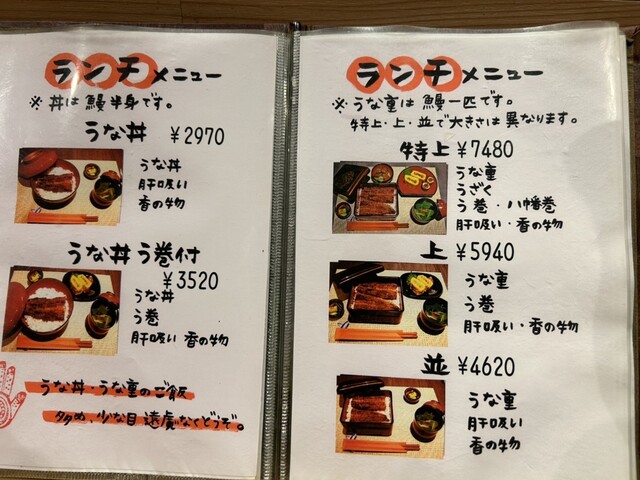 ランチメニュー
※丼は鰻半身です。
うな丼 ¥2970
うな丼
肝吸い
香の物
うな丼う巻付
¥3520
うな丼
う巻
肝吸い 香の物
うな丼・うな重のご飯
多め、少な目遠慮なくどうぞ。
ランチメニュー
※うな重は鰻一匹です。
特上・上・並で大きさは異なります。
特上 ¥7480
うな重
うざく
う巻・八幡巻
肝吸い・香の物
上 ¥5940
うな重
う巻
肝吸い・香の物
並 ¥4620
うな重
肝吸い
香の物